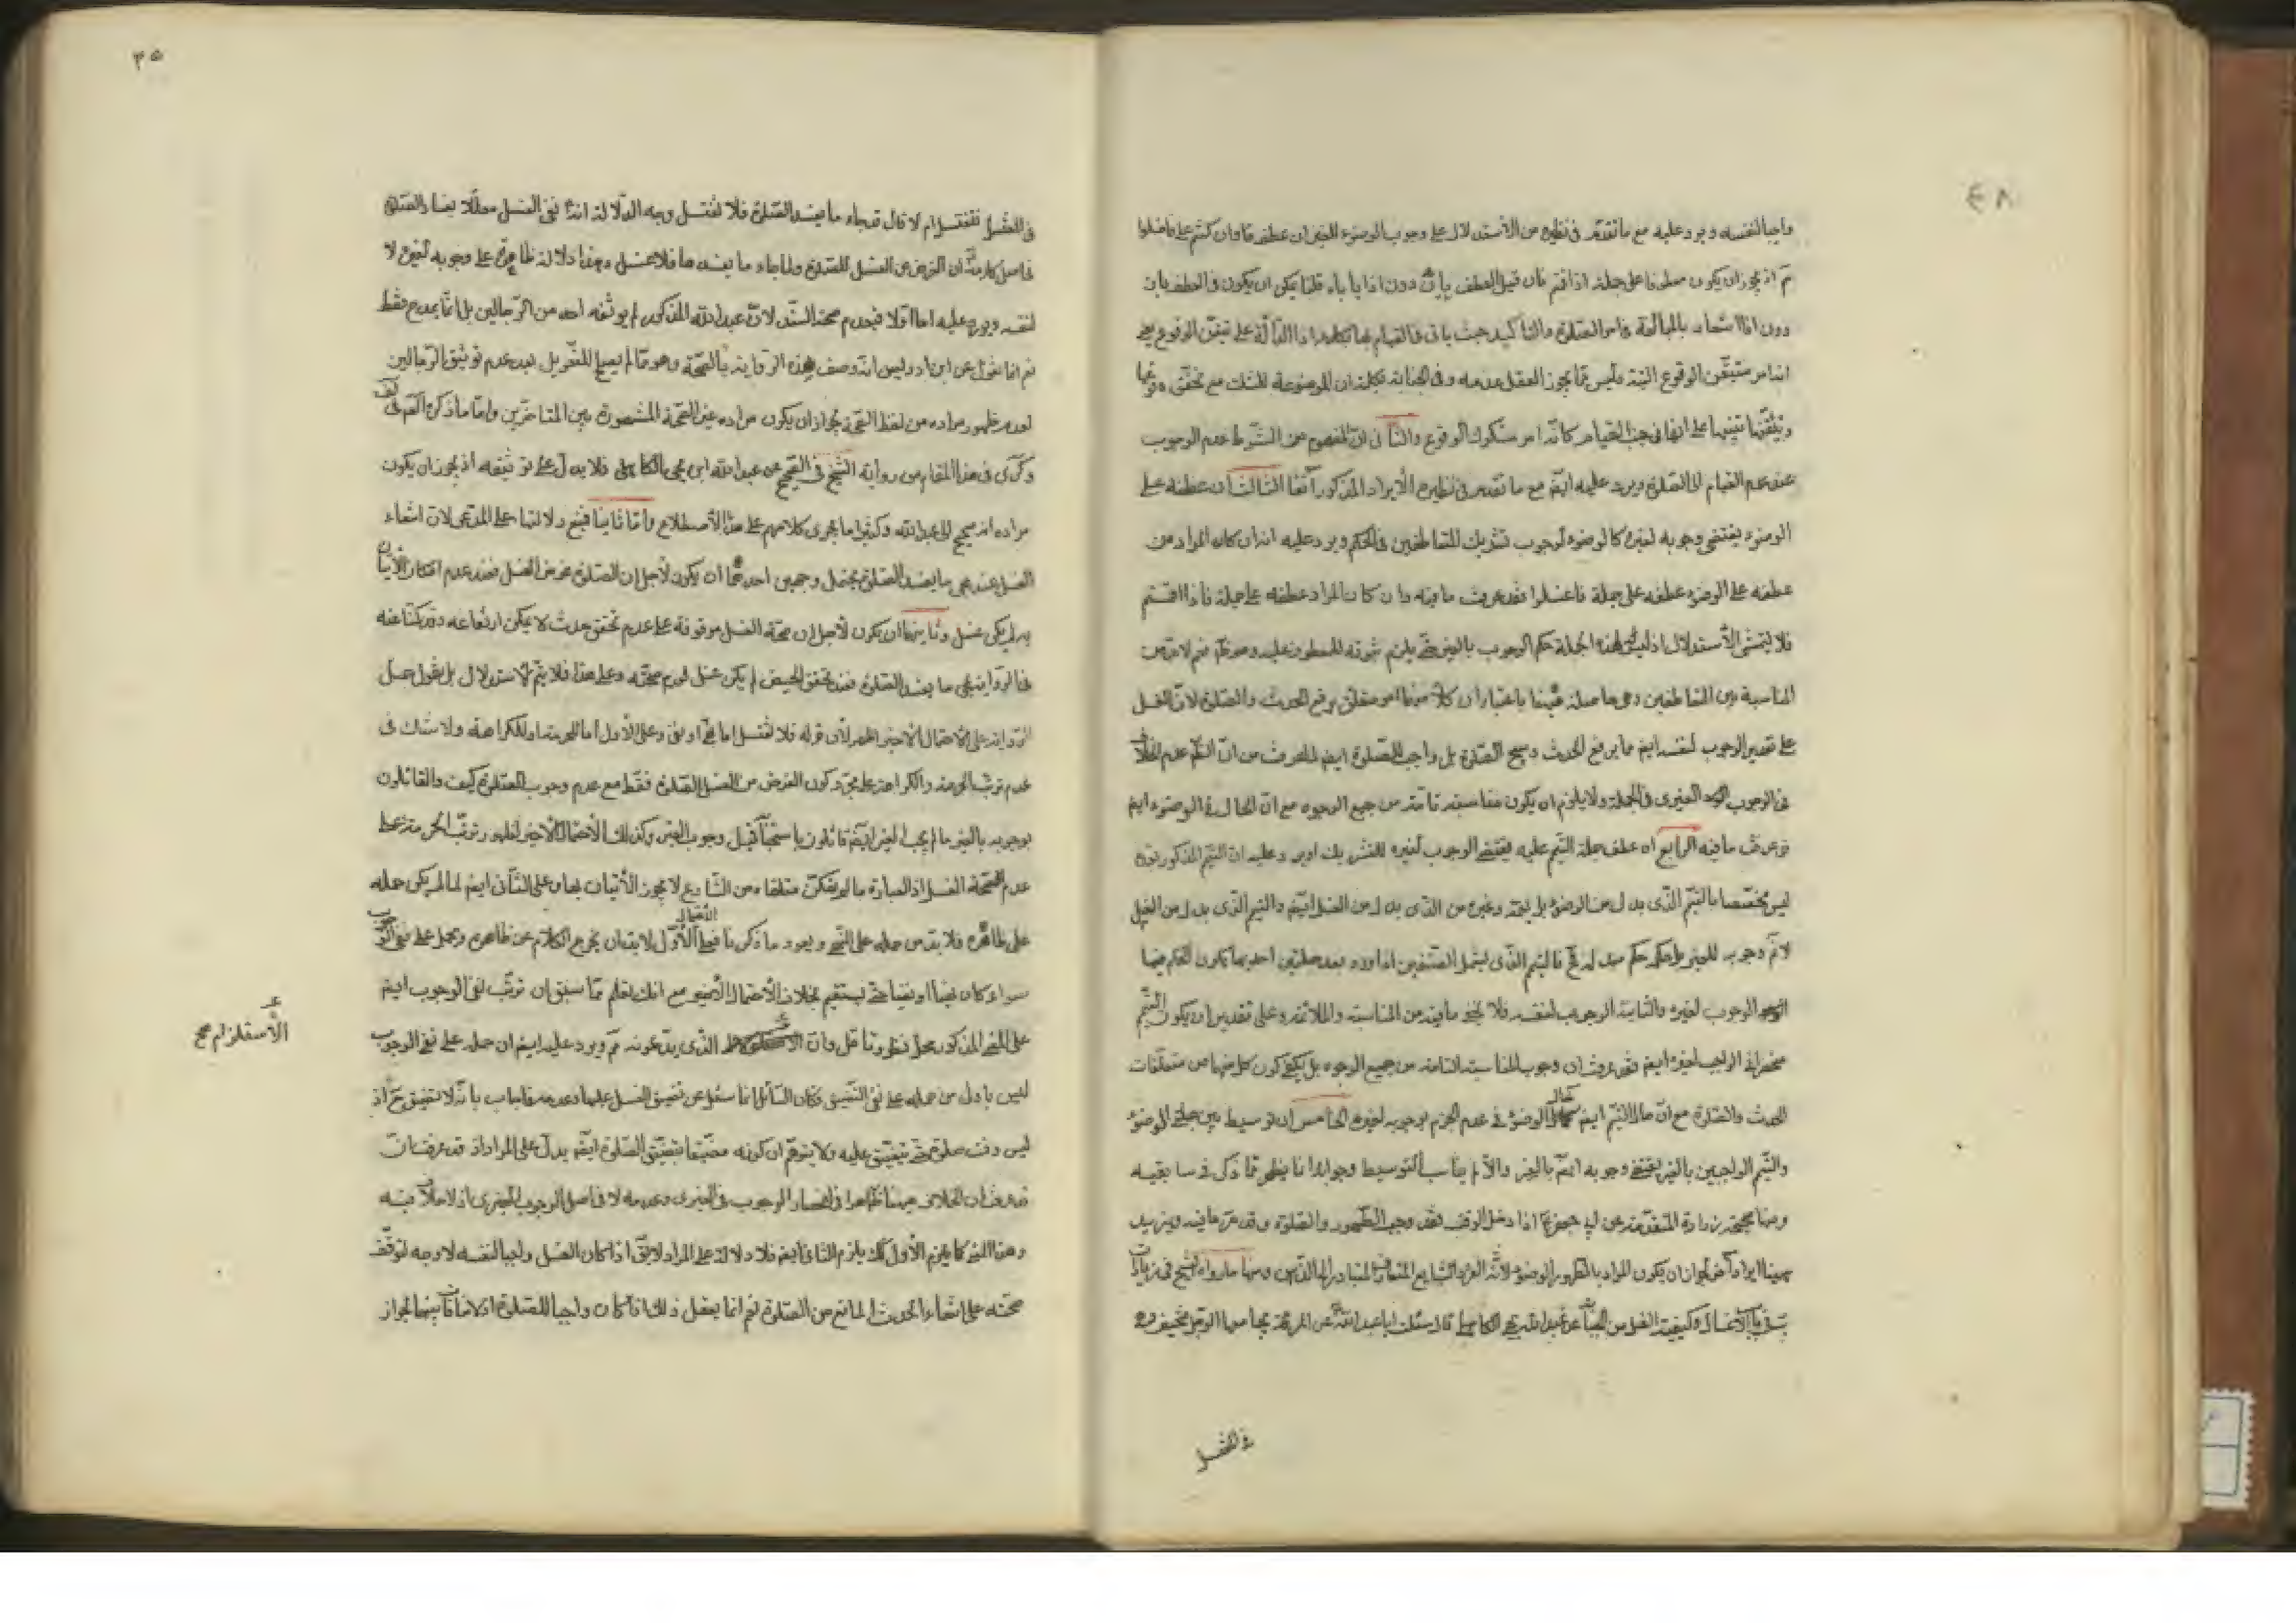 ٤٨
واجبا لنفسه ويرد عليه مع ما تقدم في نظيره من الاستدلال على وجوب الوضوء للغير ان عطف قا وان كنتم على فاغسلوا
م اذ يجوز ان يكون معطوفا على جملة اذا قمتم فان قيل العطف بان دون اذا ياباه قلنا يمكن ان يكون في العطف بان
دون اذا اشعار بالمبالغة في امر الصلوة والتاكيد حيث ياتي في القيام بها بكلمة اذا الدالة على تيقن الوقوع يعني
انه امر متيقن الوقوع البتة وليس مما يجوز العقل عدمه وفي الجنابة بكلمة ان الموضوعة للشك مع تحقق وقوعها
وتيقنها تنبيها على انها في جنب القيام كانه امر مشكوك الوقوع والثاني ان المفهوم من الشرط عدم الوجوب
عند عدم القيام الى الصلوة ويرد عليه ايضا مع ما تقدم في نظيره الايراد المذكور آنفا الثالث ان عطفه على
الوضوء يقتضي وجوبه لغيره كالوضوء لوجوب تشريك المتعاطفين في الحكم ويرد عليه انه ان كان المراد من
عطفه على الوضوء عطفه على جملة فاغسلوا فقد عرفت ما فيه وان كان المراد عطفه على جملة فاذا قمتم
فلا يتمشى الاستدلال اذ ليس لهذه الجملة حكم الوجوب بالغير حتى يلزم ثبوته للمعطوف عليه وهو نعم لا بد من
المناسبة بين المتعاطفين وهي حاصلة هيهنا باعتبار ان كلا منهما امر متعلق برفع الحدث والصلوة لان الغسل
على تقدير الوجوب لنفسه ايضا مما يرفع الحدث ويبيح الصلوة بل واجب للصلوة ايضا لما عرفت من ان الظ عدم الخلاف
في الوجوب الغيري في الجملة ولا يلزم ان يكون مناسبته تامة من جميع الوجوه مع ان الحال في الوضوء ايضا
قد عرفت ما فيه الرابع ان عطف جملة التيمم عليه يقتضي الوجوب لغيره للتشريك ويرد عليه ان التيمم المذكور
ليس مختصا بالتيمم الذي بدل من الوضوء بل يعمه وغيره من الذي بدل من الغسل ايضا والتيمم الذي بدل من الغسل
لا نم وجوبه للغير بل حكمه حكم مبدله فح فالتيمم الذي يشمل الصنفين اذا ورد بعد جملتين احديهما يكون الحكم فيها
الوجوب لغيره والثانية الوجوب لنفسه فلا يخفى ما فيه من المناسبة والملائمة وعلى تقدير ان يكون التيمم
منحصرا في الواجب لغيره ايضا فقد عرفت ان وجوب المناسبة التامة من جميع الوجوه بل يكفي كون كل منها من متعلقات
الحدث والصلوة مع ان حال التيمم ايضا كحال الوضوء في عدم الجزم بوجوبه لغيره الخامس ان توسيطه بين جملتي الوضوء
والتيمم الواجبين بالغير يقتضي وجوبه ايضا بالغير والا لم يناسب التوسيط وجوابه انما يظهر مما ذكر في سابقيه
ومنها صحيحة زرارة المتقدمة عن ابي جعفر اذا دخل الوقت فقد وجب الطهور والصلوة وقد مر ما فيه ويزيد
هيهنا ايراد آخر لجواز ان يكون المراد بالطهور الوضوء لانه الفرد الشايع المتعارف المتبادر الى الذهن ومنها ما رواه الشيخ في زيادات
يب في باب الاغسال وكيفية الغسل من الجنابة عن عبد الله بن يحيى الكاهلي قال سئلت ابا عبد الله عن المراة يجامعها الرجل فتحيض وهي
في المغتسل
٣٥
في المغتسل تغتسل ام لا قال قد جاء ما يفسد الصلوة فلا تغتسل وجه الدلالة انه نفى الغسل معللا بفساد الصلوة
فحاصل كلامه ان الغرض من الغسل للصلوة ولما جاء ما يفسدها فلا غسل وهذا دلالة ظاهرة على وجوبه لغيره لا
لنفسه ويرد عليه اما اولا فبعدم صحة السند لان عبد الله المذكور لم يوثقه احد من الرجاليين بل انما مدح فقط
نعم انما نقل عن ابن ادريس انه وصف هذه الرواية بالصحة وهو مما لم يصلح للتعويل بعد عدم توثيق الرجاليين
لعدم ظهور مراده من لفظ الصحة لجواز ان يكون مراده غير الصحة المشهورة بين المتاخرين واما ما ذكره العم في
وكرى في هذا المقام من رواية الشيخ في الصحيح عن عبد الله ابن يحيى الكاهلي فلا يدل على توثيقه اذ يجوز ان يكون
مراده انه صحيح الى عبد الله وكثيرا ما يجرى كلامهم على هذا الاصطلاح واما ثانيا فبمنع دلالتها على المدعى لان انتفاء
الغسل عند مجي ما يفسد الصلوة يحتمل وجهين احدهما ان يكون لاجل ان الصلوة غرض الغسل فعند عدم امكان الاتيان
به لم يكن غسل وثانيهما ان يكون لاجل ان صحة الغسل موقوفة على عدم تحقق حدث لا يمكن ارتفاعه وقد كنا عنه
في الرواية بمجي ما يفسد الصلوة فعند تحقق الحيض لم يكن غسل لعدم صحته وعلى هذا فلا يتم الاستدلال بل نقول حمل
الرواية على الاحتمال الاخير اظهر لان قوله فلا تغتسل اما نهي او نفي وعلى الاول اما للحرمة او للكراهة ولا شك في
عدم ترتب الحرمة والكراهة على مجرد كون الغرض من الغسل الصلوة فقط مع عدم وجوب الصلوة كيف والقائلون
بوجوبه بالغير ما لم يجب الغير ايضا قائلون باستحبابه قبل وجوب الغير وكذلك الاحتمال الاخير لظهور ترتب الحرمة على
عدم صحة الغسل اذ العبادة ما لم يكن متلقاة من الشارع لا يجوز الاتيان بها وعلى الثاني ايضا لما لم يكن حمله
على ظاهره فلا بد من حمله على النهي ويعود ما ذكرنا فعلى الاحتمال الاول لا بد ان يخرج الكلام عن ظاهره ويحمل على نفي الوجوب
سواء كان نهيا او نفيا حتى يستقيم بخلاف الاحتمال الاخير مع انك تعلم مما سبق ان ترتب نفي الوجوب ايضا
على المعنى المذكور محل نظر وتامل وان الذي يدعونه مم ويرد عليه ايضا ان حمله على نفي الوجوب
الاستلزام صح
ليس باولى من حمله على نفي التضيق فكان السائل انما سئل عن تضيق الغسل عليها وعدمه فاجاب بانه لا تضيق ح اذ
ليس وقت صلوة حتى يتضيق عليه ولا يتوهم ان كونه مضيقا بتضيق الصلوة ايضا يدل على المراد اذ قد عرفت ان
قد عرفت ان الخلاف هيهنا ظاهرا في انحصار الوجوب في الغيري وعدمه لا في اصل الوجوب الغيري اذ لا خلاف فيه
وهذا المعنى كما يلزم الاول كك يلزم الثاني ايضا فلا دلالة على المراد لا يق اذا كان الغسل واجبا لنفسه لا وجه لتوقف
صحته على انتفاء الحدث المانع من الصلوة نعم انما يعقل ذلك اذا كان واجبا للصلوة اذ لا منافاة بينهما لجواز